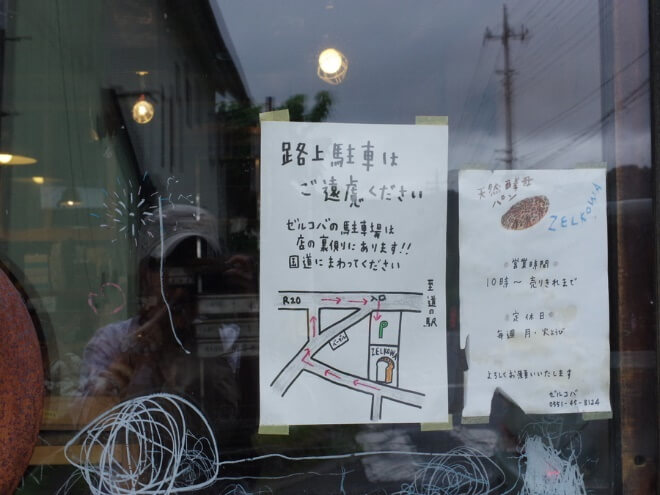 路上駐車は
ご遠慮ください
ゼルコバの駐車場は
店の裏側にあります!!
国道にまわってください
R20
入口
至道の駅
P
ZELKOWA
天然酵母
パン
ZELKOWA
営業時間
10時〜売りきれまで
定休日
毎週 月・火よう
よろしくお願いいたします
ゼルコバ
0551-45-8124